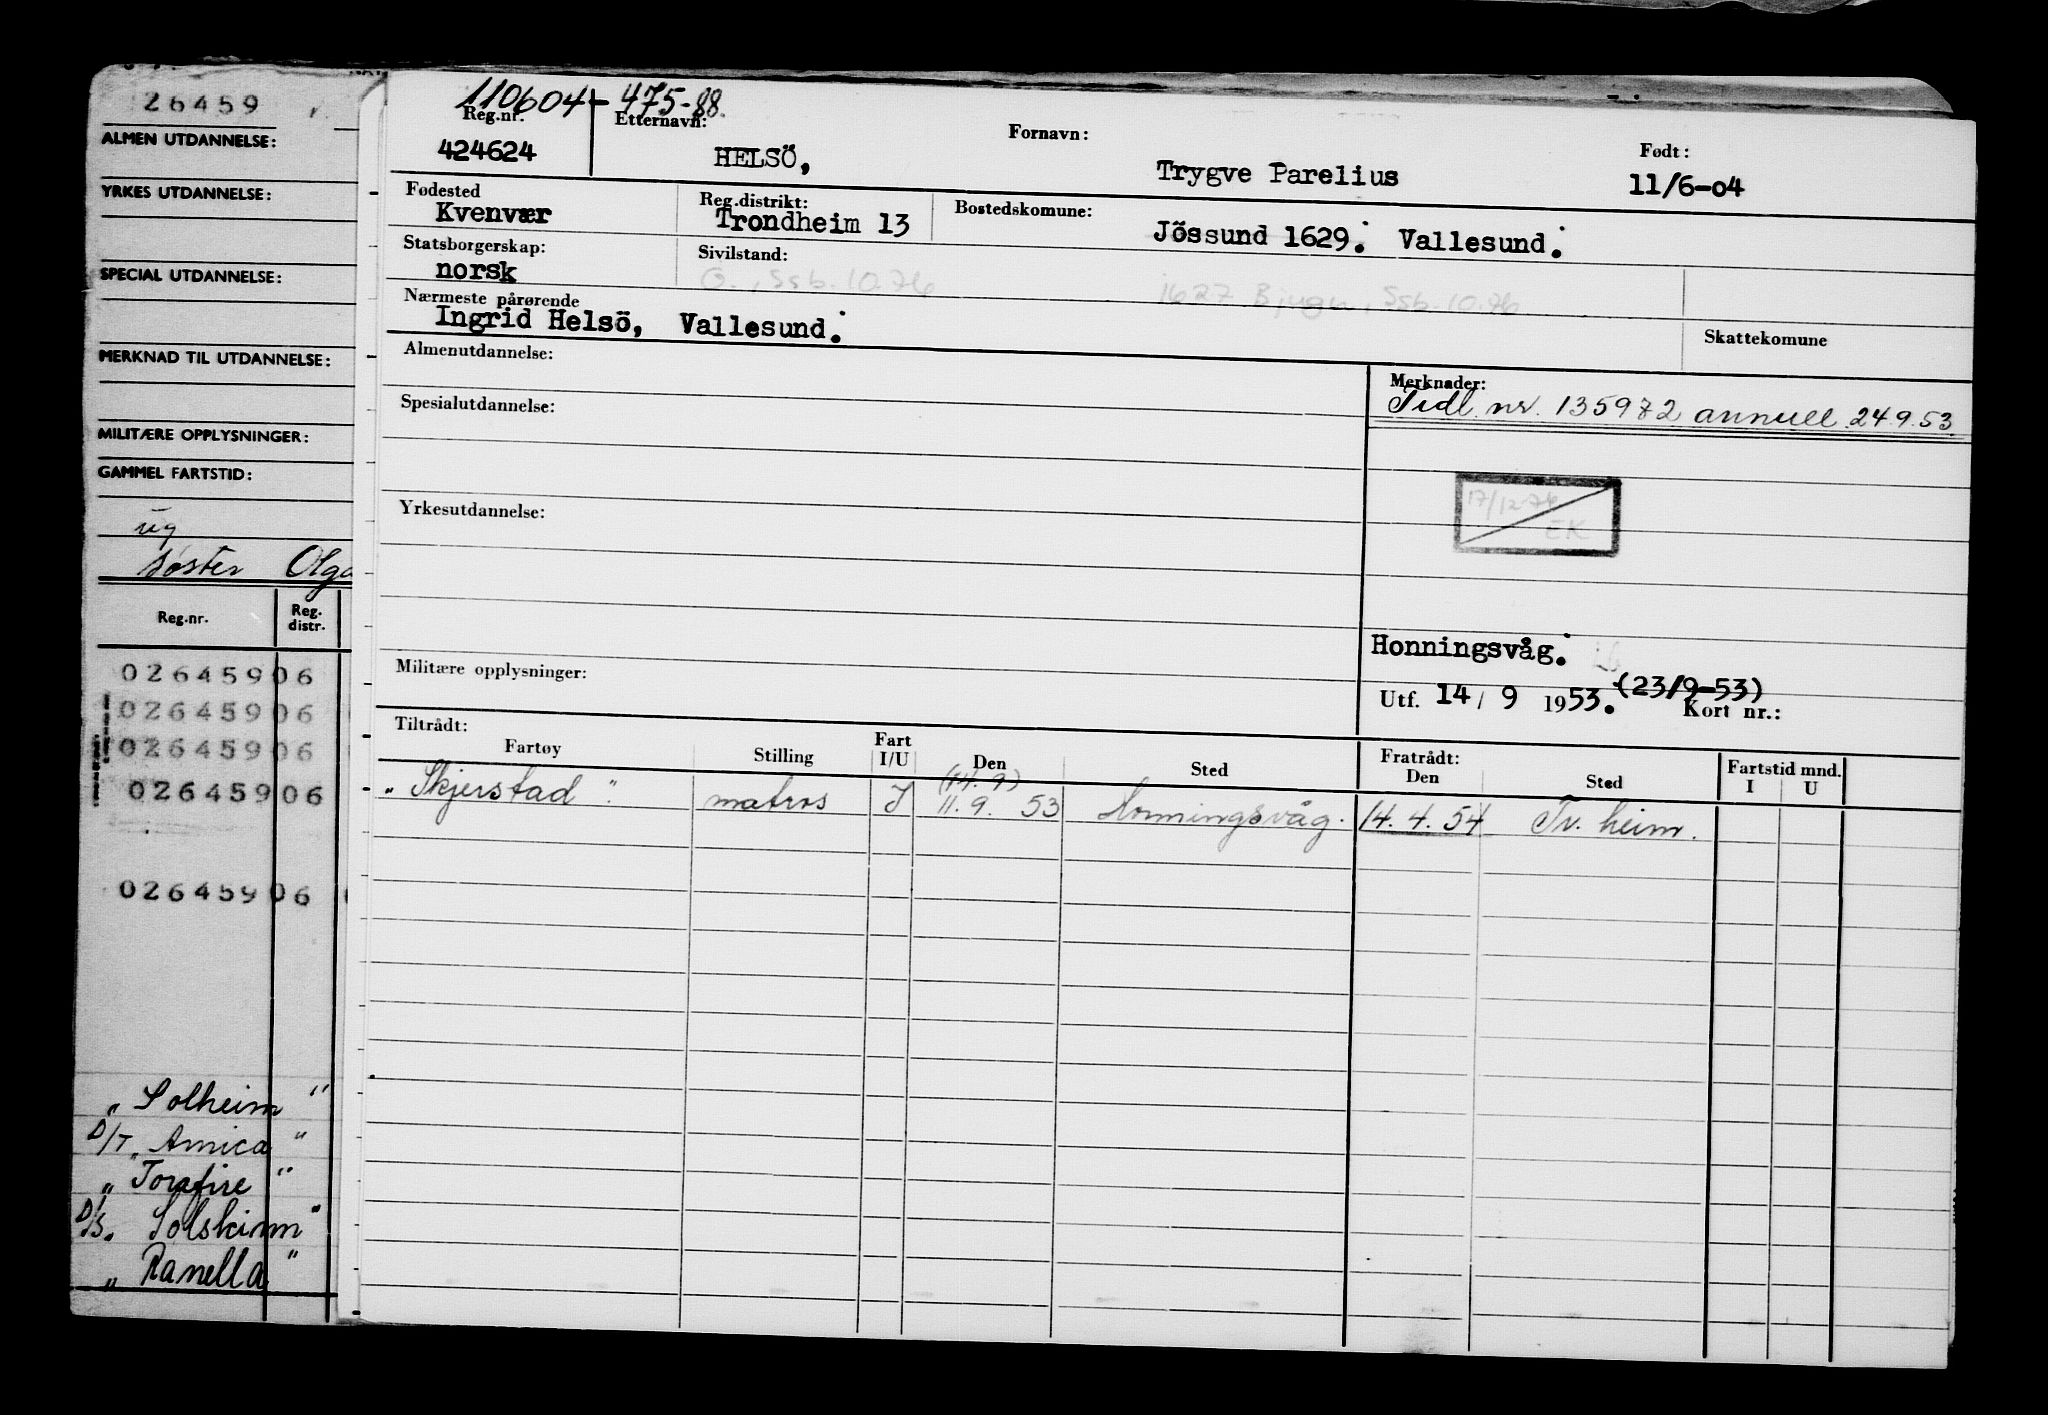 26459
ALMEN UTDANNELSE:
YRKES UTDANNELSE:
SPECIAL UTDANNELSE:
MERKNAD TIL UTDANNELSE:
MILITÆRE OPPLYSNINGER:
GAMMEL FARTSTID:
ug
søster Olga
Reg.nr. Reg. distr.
026459 06
026459 06
026459 06
026459 06
026459 06
„ Solheim "
D/T „ Amica "
„ Torafire "
D/S. Solskinn"
„ Ranella "
110604-475-88.
Reg.nr. Etternavn: Fornavn: Født:
424624 HELSÖ, Trygve Parelius 11/6-04
Fødested Reg.distrikt: Bostedskomune:
Kvenvær Trondheim 13 Jössund 1629. Vallesund.
Statsborgerskap: Sivilstand:
norsk G., Ssb. 10.76 1627 Bjugn, Ssb. 10.76
Nærmeste pårørende
Ingrid Helsö, Vallesund. Skattekomune
Almenutdannelse: Merknader:
Tidl. nr. 135972 annull. 24.9.53
Spesialutdannelse:
17/12-76
EK
Yrkesutdannelse:
Honningsvåg.
Militære opplysninger: Utf. 14 / 9 1953. (23/9-53) Kort nr.:
Tiltrådt: Fratrådt: Fartstid mnd.
Fartøy Stilling Fart I/U Den Sted Den Sted I U
(14.9)
„ Skjerstad ". matros I 11.9. 53 Honningsvåg. 14.4.54 Tr. heim.